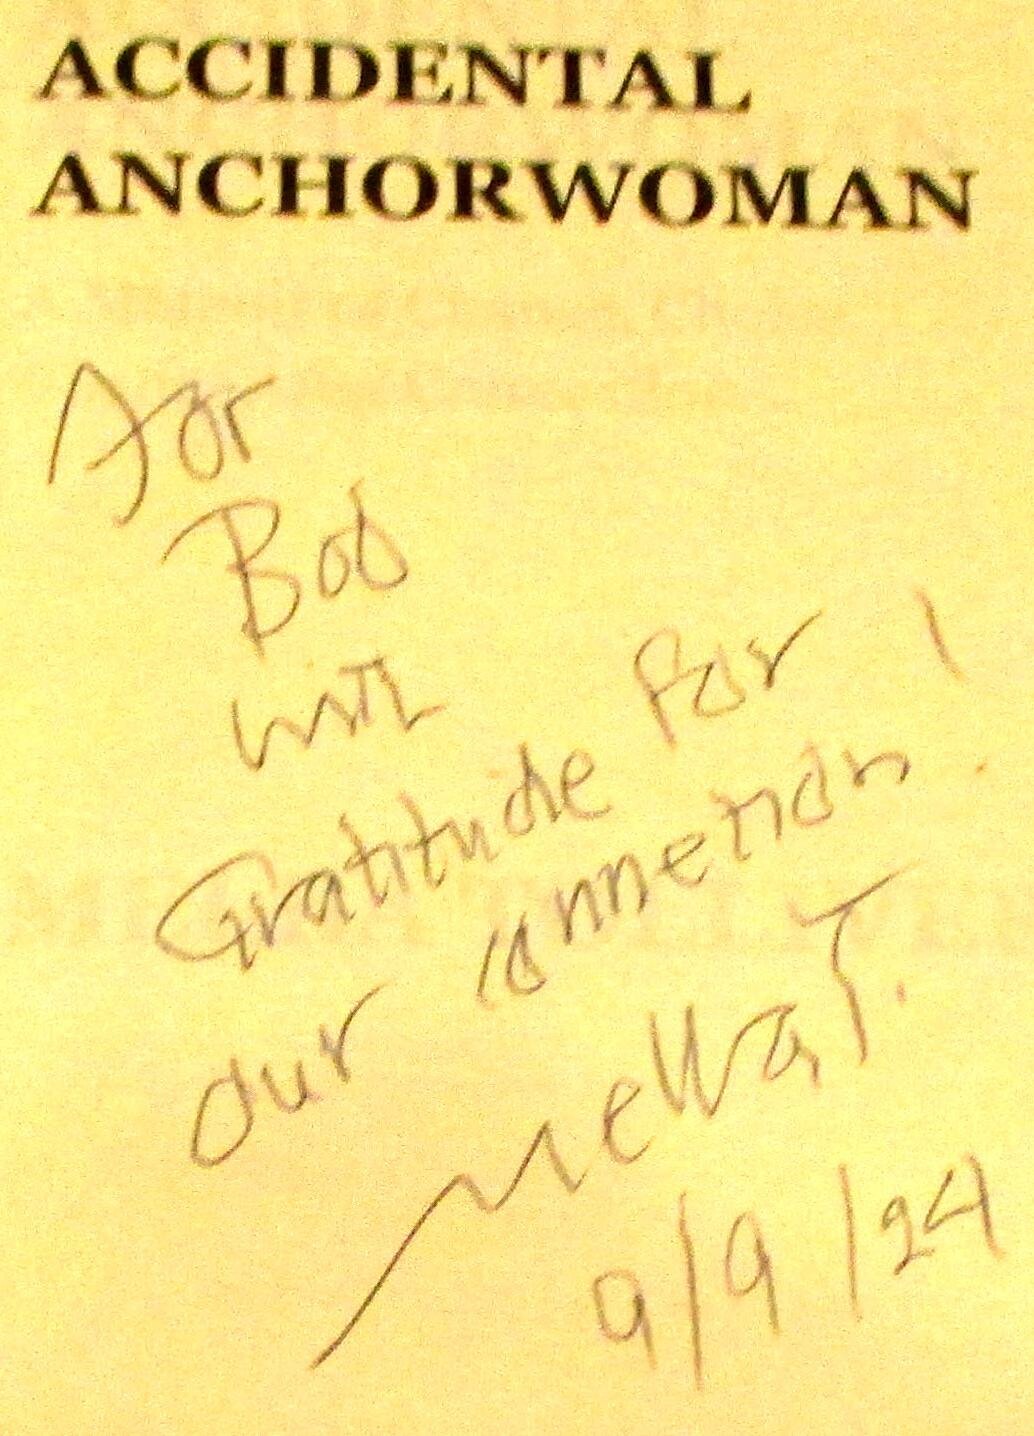 ACCIDENTAL
ANCHORWOMAN
For
Bob
with
Gratitude for
our connetion!
Mella T.
9/9/24